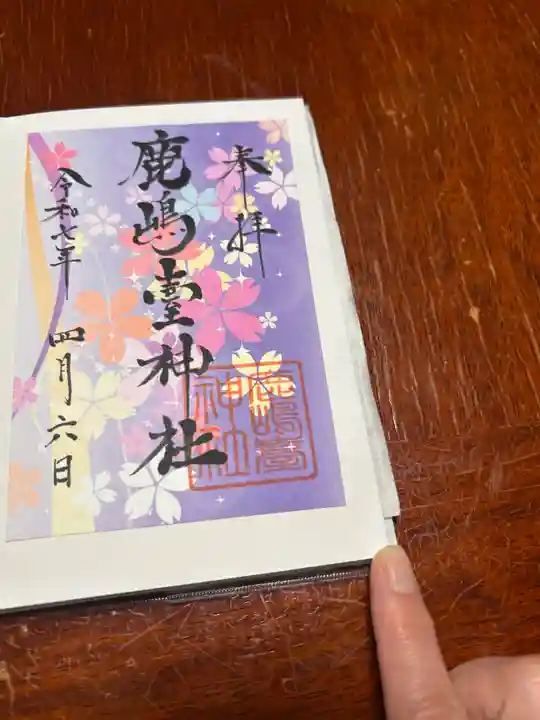 奉拝
鹿嶋臺神社
令和七年 四月六日
鹿嶋臺
神社